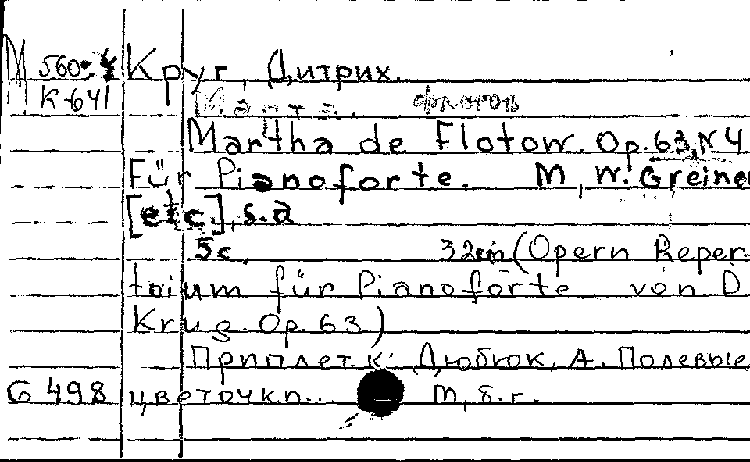 М 560-4 Круг, Дитрих.
К-641 [Марта. Флотов
Martha de Flotow. Op. 63, N 4
Für Pianoforte. M, W. Greiner
[etc.], s.a
5с. 32cm (Opern Reper-
toium für Pianoforte von D
Krug. Op. 63)
Приплет к: Дюбюк, А. Полевые
G 498 цветочки.. М, б.г.